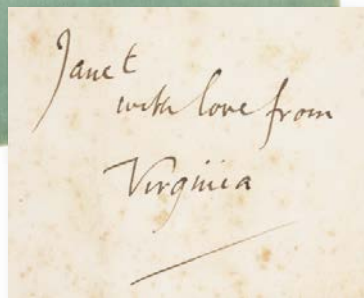 Janet
with love from
Virginia